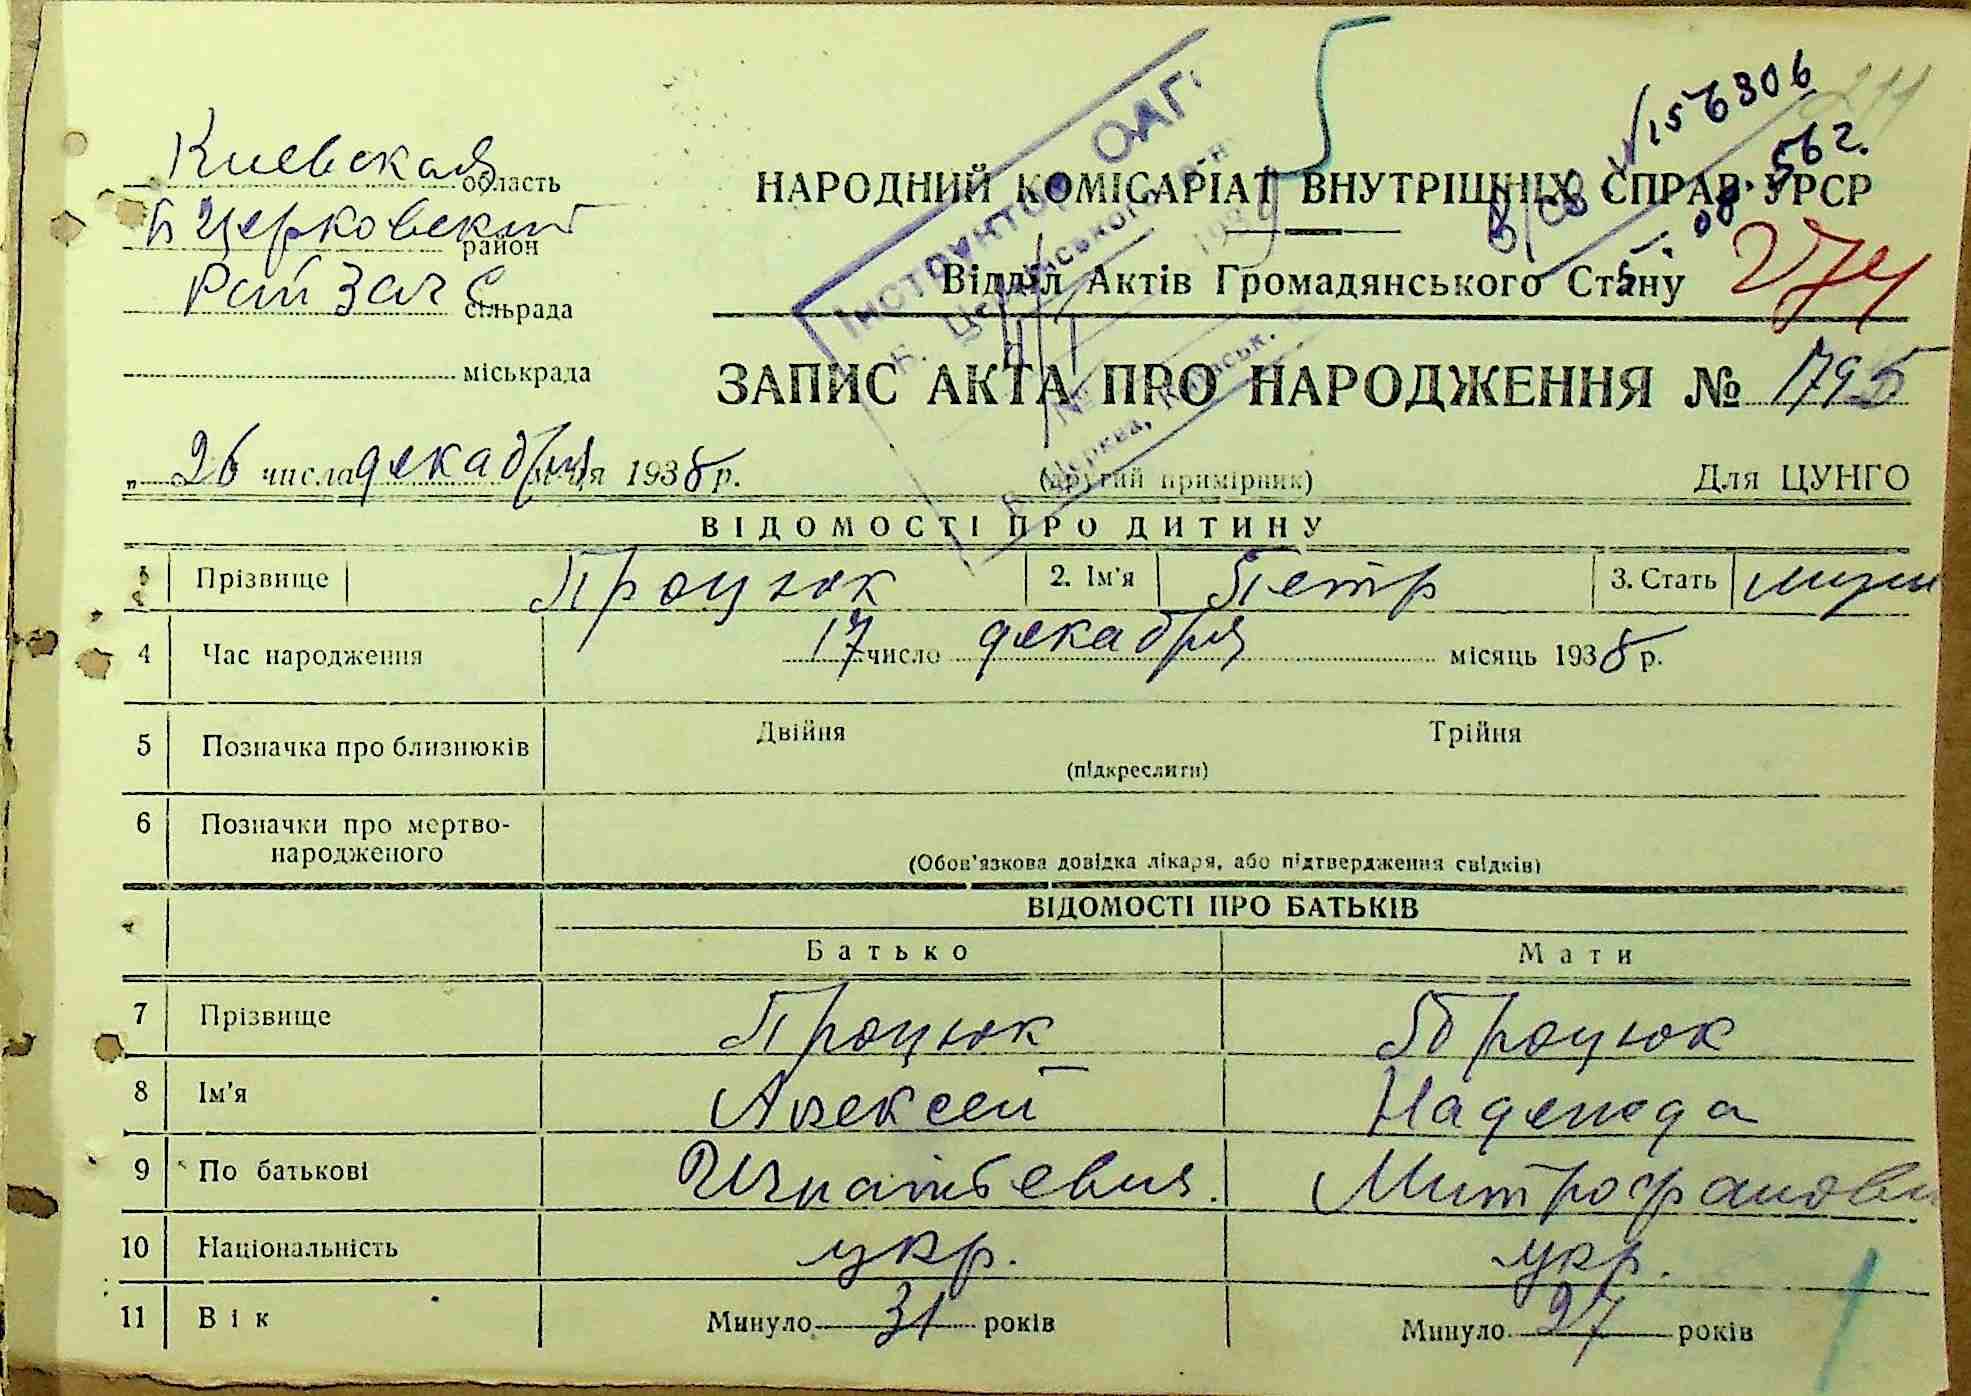 Киевская область
Б Церковский район
Рай Загс сільрада
міськрада
V 156306
5. 08. 56 г.
274
НАРОДНИЙ КОМІСАРІАТ ВНУТРІШНІХ СПРАВ УРСР
Відділ Актів Громадянського Стану
ЗАПИС АКТА ПРО НАРОДЖЕННЯ № 1795
Інструктор ОАГС
„ 26 числа декабря м-ця 1938 р. (другий примірник) Для ЦУНГО
ВІДОМОСТІ ПРО ДИТИНУ
1 Прізвище Процюк 2. Ім'я Петр 3. Стать муж
4 Час народження 17 число декабря місяць 1938 р.
5 Позначка про близнюків Двійня Трійня
(підкреслити)
6 Позначки про мертво-
народженого
(Обов'язкова довідка лікаря, або підтвердження свідків)
ВІДОМОСТІ ПРО БАТЬКІВ
Батько Мати
7 Прізвище Процюк Процюк
8 Ім'я Алексей Надежда
9 По батькові Игнатьевич. Митрофанов
10 Національність укр. укр.
11 Вік Минуло 31 років Минуло 27 років